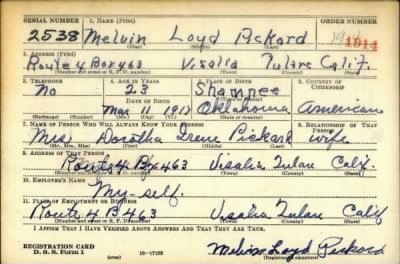 SERIAL NUMBER 1. NAME (Print) ORDER NUMBER
2538 Melvin Loyd Pickard 1914
(First) (Middle) (Last)
2. ADDRESS (Print)
Route 4 Box 463 Visalia Tulare Calif.
(Number and street or R. F. D. number) (Town) (County) (State)
3. TELEPHONE 4. AGE IN YEARS 5. PLACE OF BIRTH 6. COUNTRY OF CITIZENSHIP
No 23 Shawnee
DATE OF BIRTH (Town or county)
Mar 11 1917 Oklahoma American
(Exchange) (Number) (Mo.) (Day) (Yr.) (State or country)
7. NAME OF PERSON WHO WILL ALWAYS KNOW YOUR ADDRESS 8. RELATIONSHIP OF THAT PERSON
Mrs Irene Pickard wife
(Mr., Mrs., Miss) (First) (Middle) (Last)
9. ADDRESS OF THAT PERSON
Route 4 Box 463 Visalia Tulare Calif.
(Number and street or R. F. D. number) (Town) (County) (State)
10. EMPLOYER'S NAME
My-self.
11. PLACE OF EMPLOYMENT OR BUSINESS
Route 4 B 463 Visalia Tulare Calif
(Number and street or R. F. D. number) (Town) (County) (State)
I AFFIRM THAT I HAVE VERIFIED ABOVE ANSWERS AND THAT THEY ARE TRUE.
REGISTRATION CARD
D. S. S. Form 1 (over) 16—17105 Melvin Loyd Pickard
(Registrant's signature)